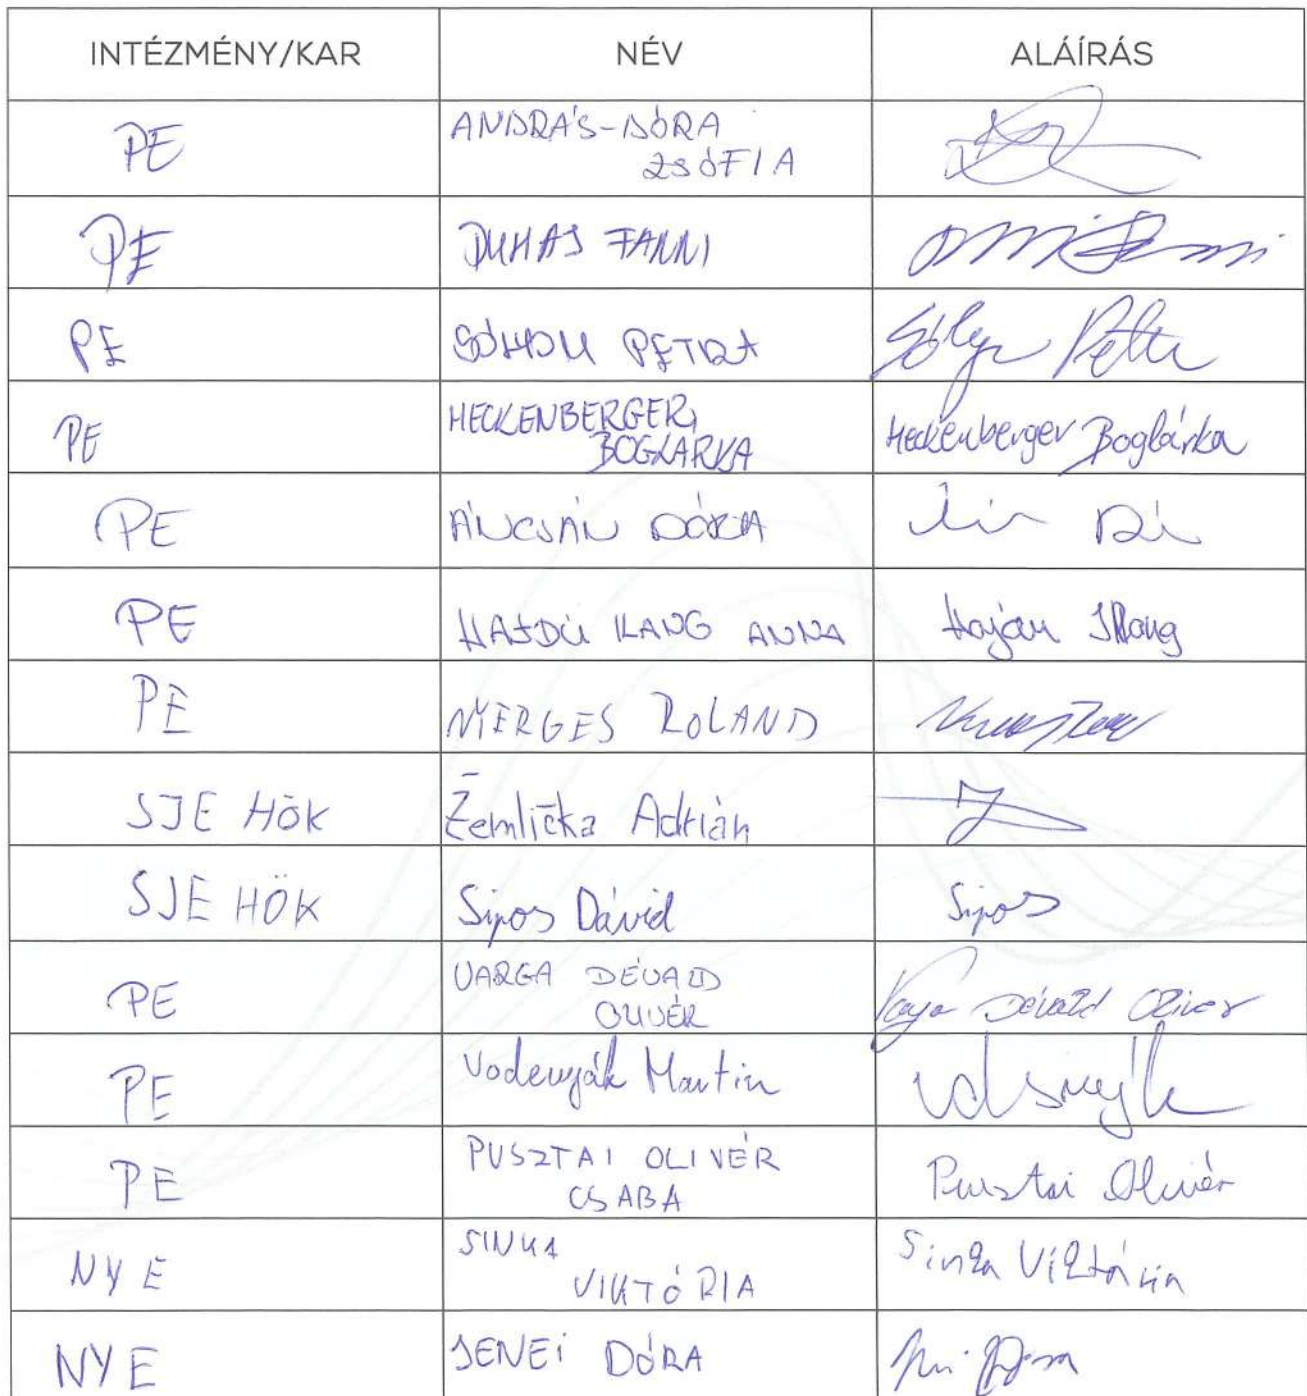 INTÉZMÉNY/KAR NÉV ALÁÍRÁS
PE ANDRÁS-DÓRA
ZSÓFIA
PE DUHAS FANNI
PE SÓLYOM PETRA Sólyom Petra
PE HECKENBERGER
BOGLÁRKA Heckenberger Boglárka
PE ÁNCSÁN DÓRA
PE HAJDÚ ILANG ANNA
PE NYERGES ROLAND
SJE HÖK Žemlička Adrián
SJE HÖK Sipos Dávid Sipos
PE VARGA DÉVALD
OLIVÉR Varga Dévald Olivér
PE Vodenyák Martin
PE PUSZTAI OLIVÉR
CSABA Pusztai Olivér
NYE SINKA
VIKTÓRIA Sinka Viktória
NYE JENEI DÓRA